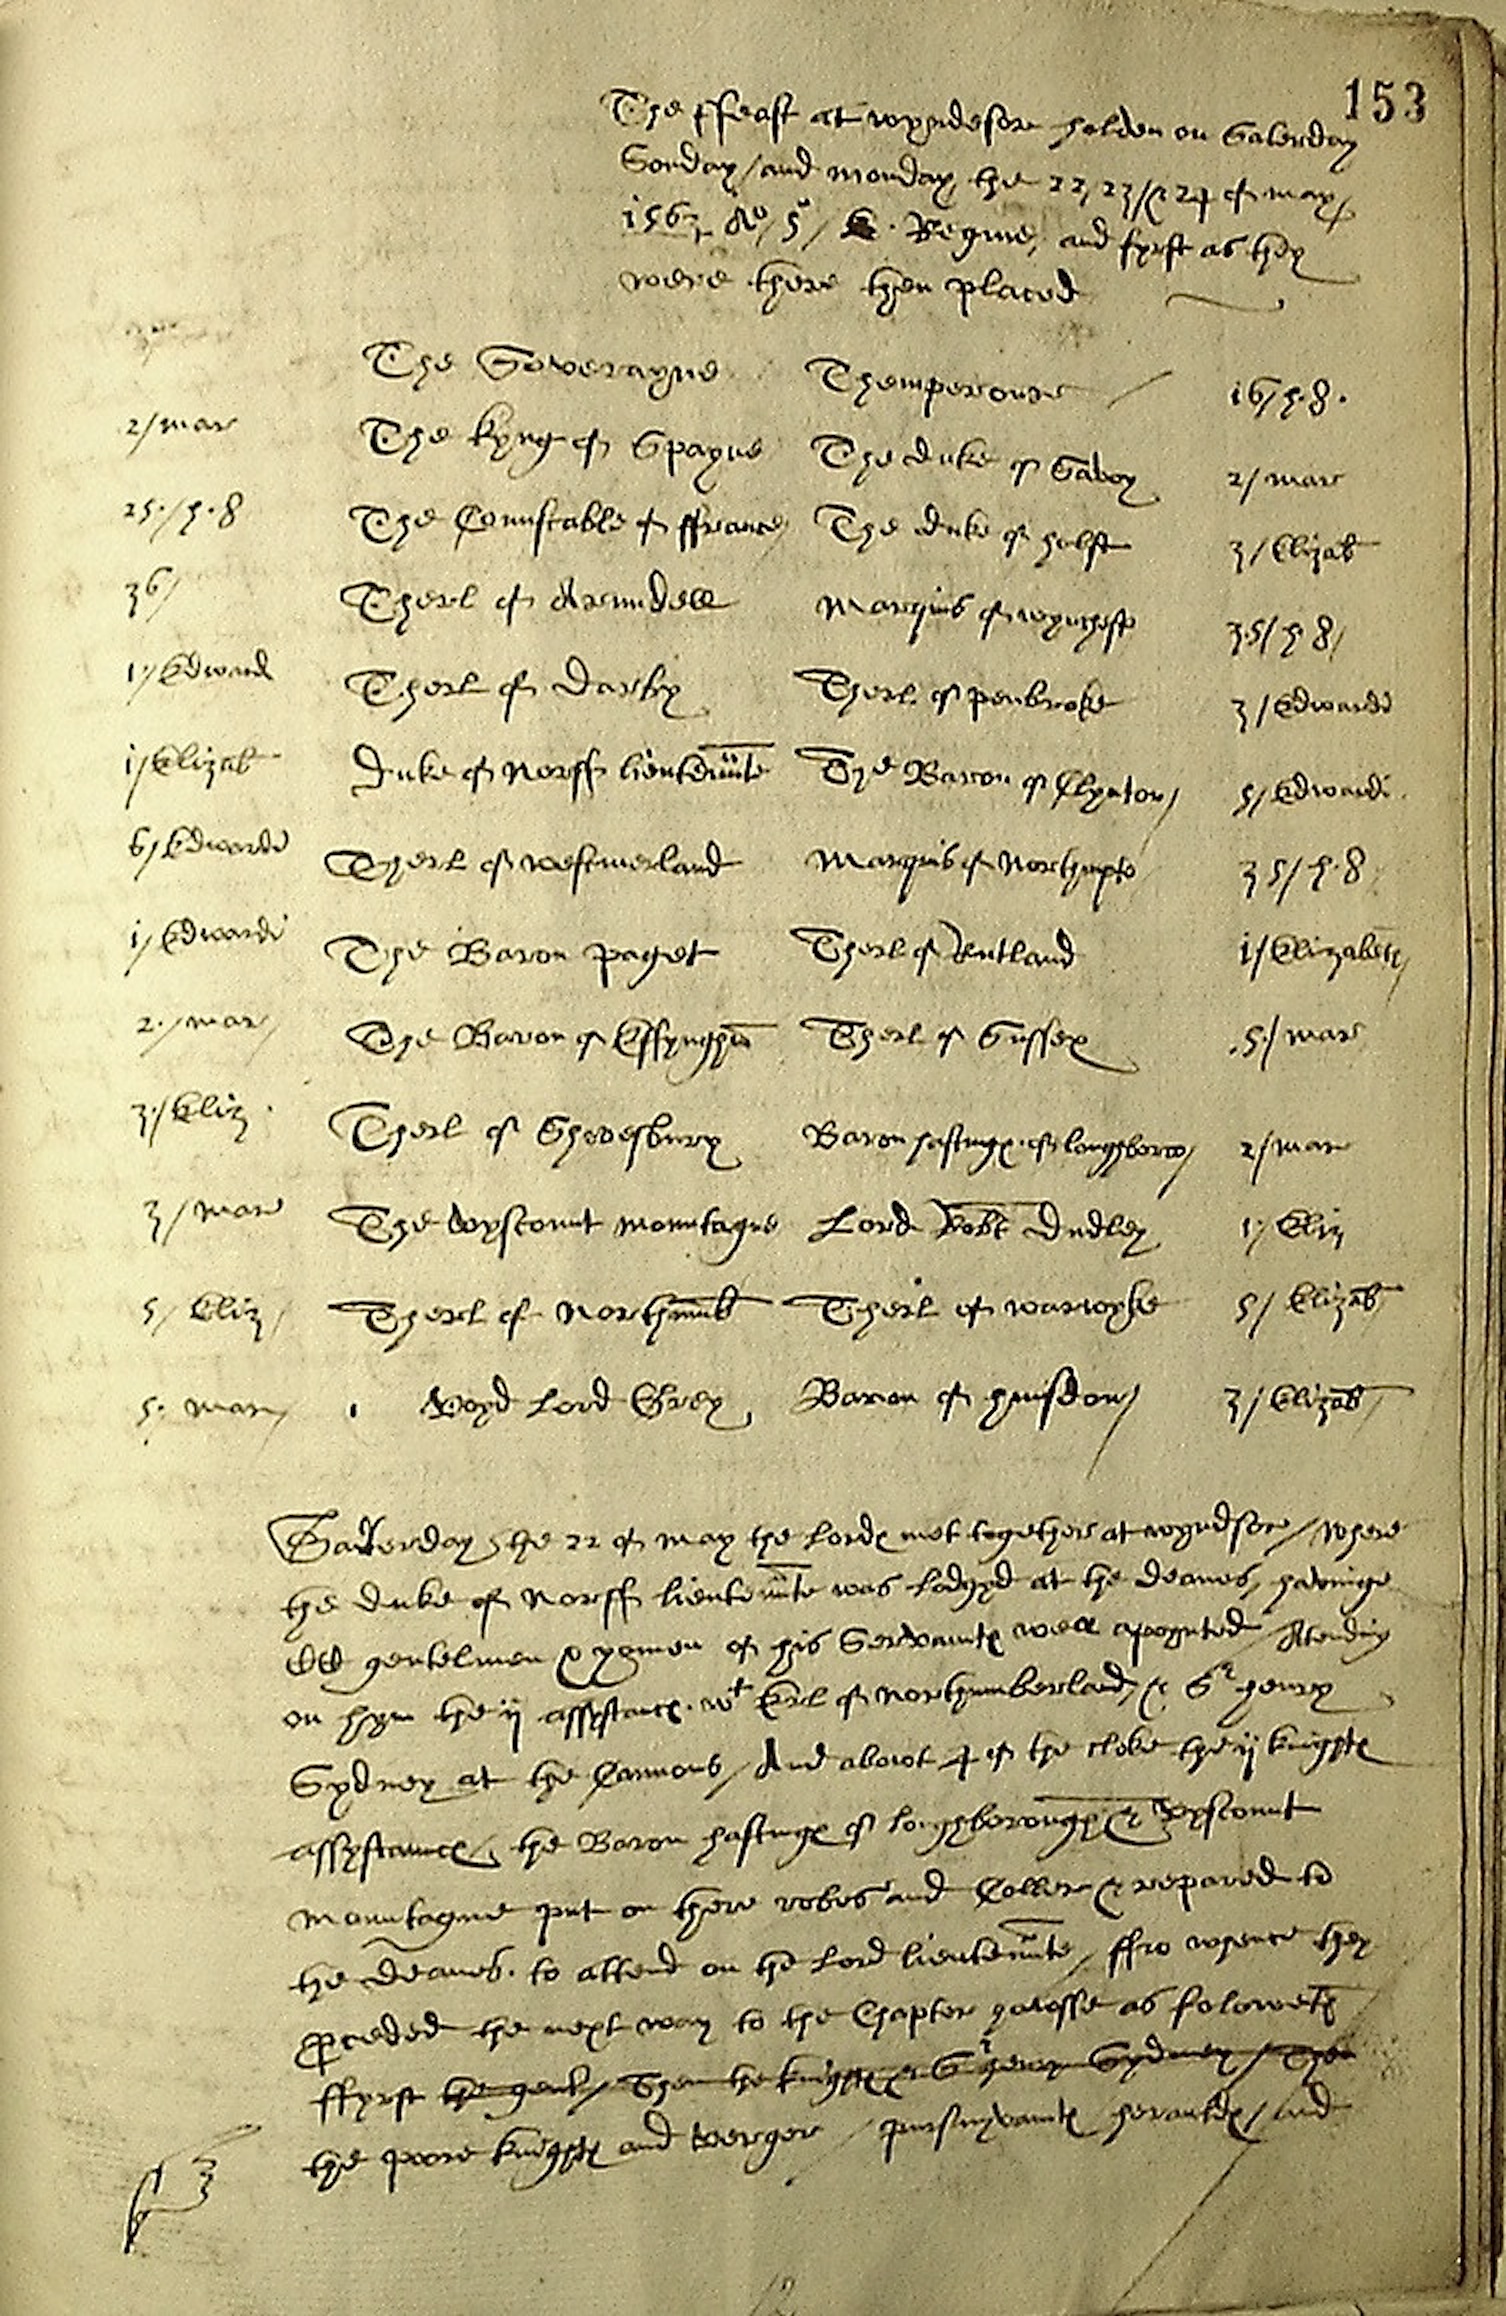 153
The ffeast at wyndesore holden on Saterday
Sonday / and monday, the 22, 23 / & 24 of may,
1563 Ao / 5o / E. Regine, and fyrst as they
were there then placed
The Soverayne Themperoure / 16 / h. 8.
2 / mar The kyng of Spayne The duke of Savoy 2 / mar
25. / h. 8 The Counstable of ffrance, The duke of holst 3 / Elizab
36 / Therl of Arundell Marquis of wynchestr 35 / h. 8 /
1 / Edwardi Therl of Darby Therl of penbroke 3 / Edwardi
1 / Elizab Duke of Norff lieutennte The Baron of Clynton / 5 / Edwardi
6 / Edwardi Therl of westmerland Marquis of Northampto 35 / h. 8
1 / Edwardi The Baron Paget Therl of Rutland 1 / Elizabeth
2. / mar / The Baron of Effyngham Therl of Sussex .5. / mar
3. / Eliz. Therl of Shrewsbury Baron hastinges of loughborow / 2 / mar
3 / mar The vyscount mountague Lord Robt Dudley 1 / Eliz
5 / Eliz / Therl of Northumb Therl of warwyke 5 / Elizab
5. mar / 1 Voyd Lord Grey Baron of hunsdon / 3 / Elizab /
Saterday the 22 of may the Lordes met together at wyndsore / where
the duke of Norff lieutennte was lodgyd at the deanes, havinge
gentelmen & yomen of his Servauntes well apoynted / Atending
on hym the ij assystantes. wt Erl of Northumberland, & Sr henry
Sydney at the Cannons / And about 4 of the cloke the ij knightes
assystantes, the Baron hastinges of loughborough & vyscount
mountague put on there robes and Coller & repared to
the deanes. to attend on the Lord lieutennte / ffro whence they
pceded the next way to the Chapter howsse as foloweth
ffyrst the gent / Then the knightes & Sr henry Sydney / The
the poore knightes and verger / pursuyvantes herauldes / and